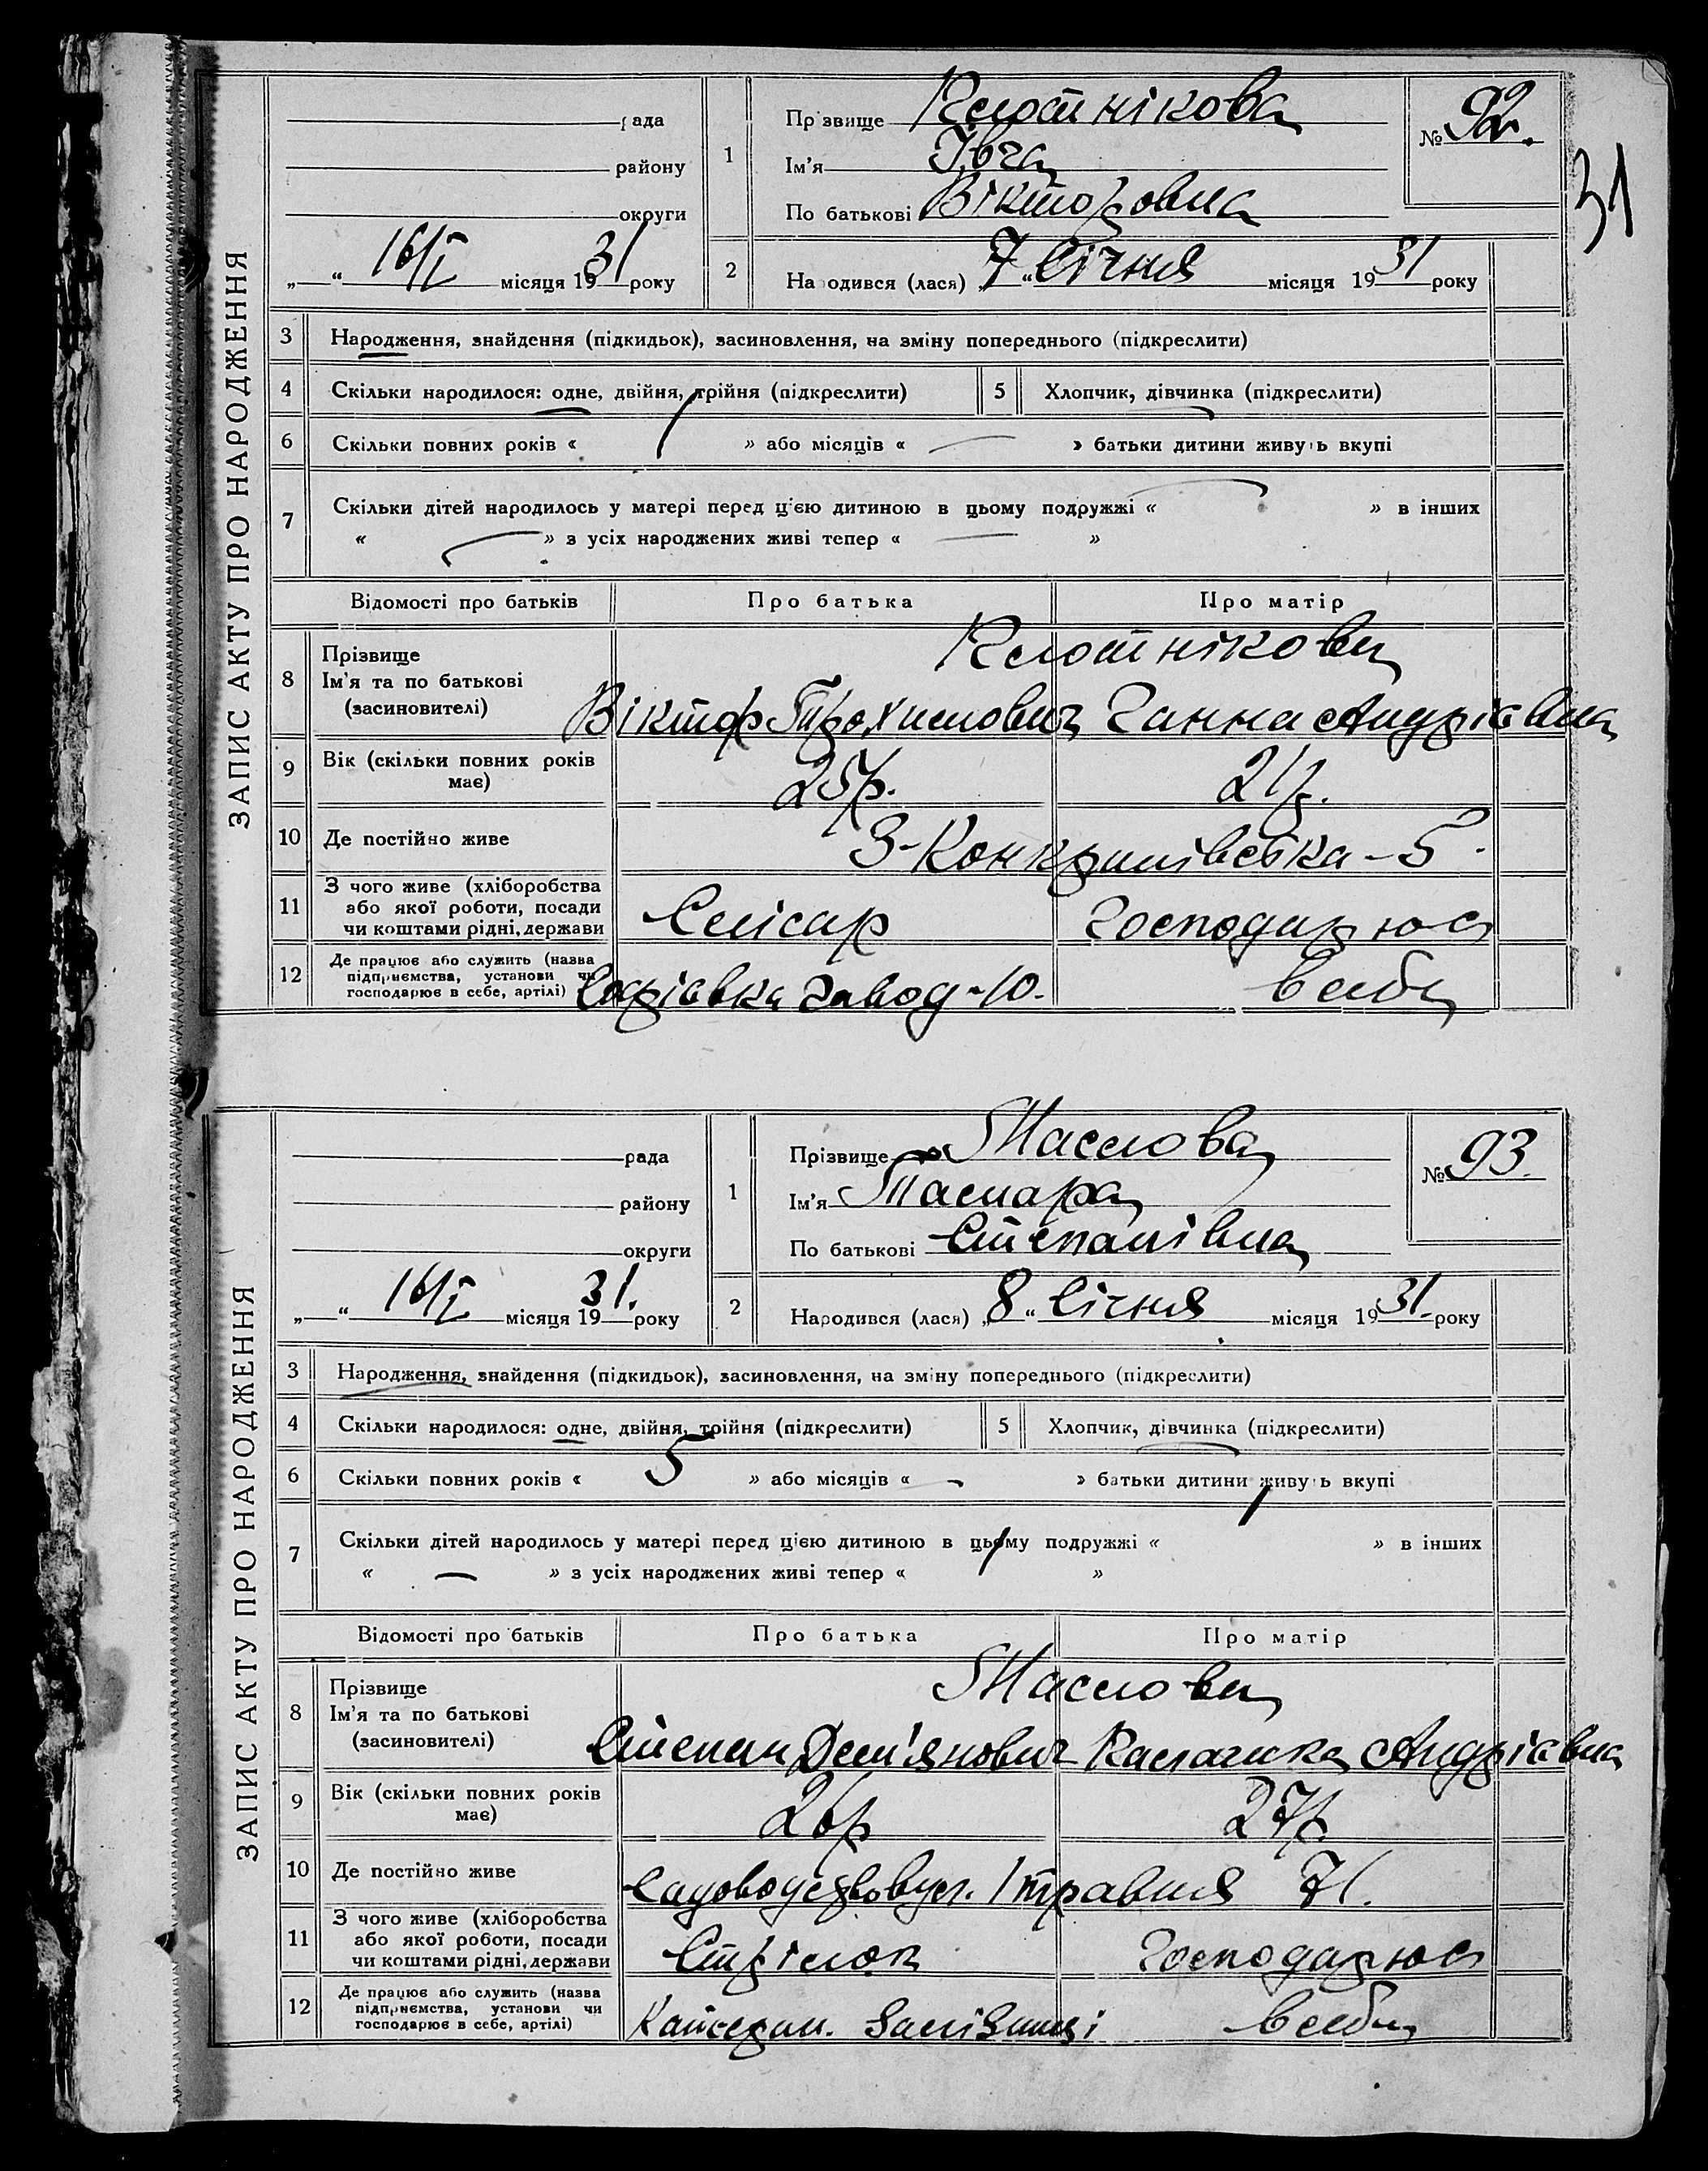 ЗАПИС АКТУ ПРО НАРОДЖЕННЯ
рада
району
округи
„ “ 16/I місяця 1931 року
1
Прізвище Клютнікова
Ім'я
По батькові Вікторовна
№ 92.
31
2 Народився (лася) „7“ Січня місяця 1931 року
3 Народження, знайдення (підкидьок), засиновлення, на зміну попереднього (підкреслити)
4 Скільки народилося: одне, двійня, трійня (підкреслити)
5 Хлопчик, дівчинка (підкреслити)
6 Скільки повних років « 1 » або місяців « — » батьки дитини живуть вкупі
7 Скільки дітей народилось у матері перед цією дитиною в цьому подружжі « — » в інших
« — » з усіх народжених живі тепер « — »
Відомості про батьків Про батька Про матір
8 Прізвище
Ім'я та по батькові
(засиновителі)
Клютнікови
Віктор Ганна Андріївна
9 Вік (скільки повних років має) 25р. 21р.
10 Де постійно живе 5
11 З чого живе (хліборобства або якої роботи, посади чи коштами рідні, держави Слісар Господарює
12 Де працює або служить (назва підприємства, установи чи господарює в себе, артілі) завод-10. в себе
ЗАПИС АКТУ ПРО НАРОДЖЕННЯ
рада
району
округи
„ “ 16/I місяця 1931. року
1
Прізвище Маслова
Ім'я Тамара
По батькові Степанівна
№ 93.
2 Народився (лася) „8“ Січня місяця 1931. року
3 Народження, знайдення (підкидьок), засиновлення, на зміну попереднього (підкреслити)
4 Скільки народилося: одне, двійня, трійня (підкреслити)
5 Хлопчик, дівчинка (підкреслити)
6 Скільки повних років « 5 » або місяців « — » батьки дитини живуть вкупі
7 Скільки дітей народилось у матері перед цією дитиною в цьому подружжі « 1 » в інших
« — » з усіх народжених живі тепер « 1 »
Відомості про батьків Про батька Про матір
8 Прізвище
Ім'я та по батькові
(засиновителі)
Маслови
Степан Дем'янович Андріївна
9 Вік (скільки повних років має) 26р 27р
10 Де постійно живе 1 травня 71.
11 З чого живе (хліборобства або якої роботи, посади чи коштами рідні, держави Стрілок Господарює
12 Де працює або служить (назва підприємства, установи чи господарює в себе, артілі) Залізниці в себе